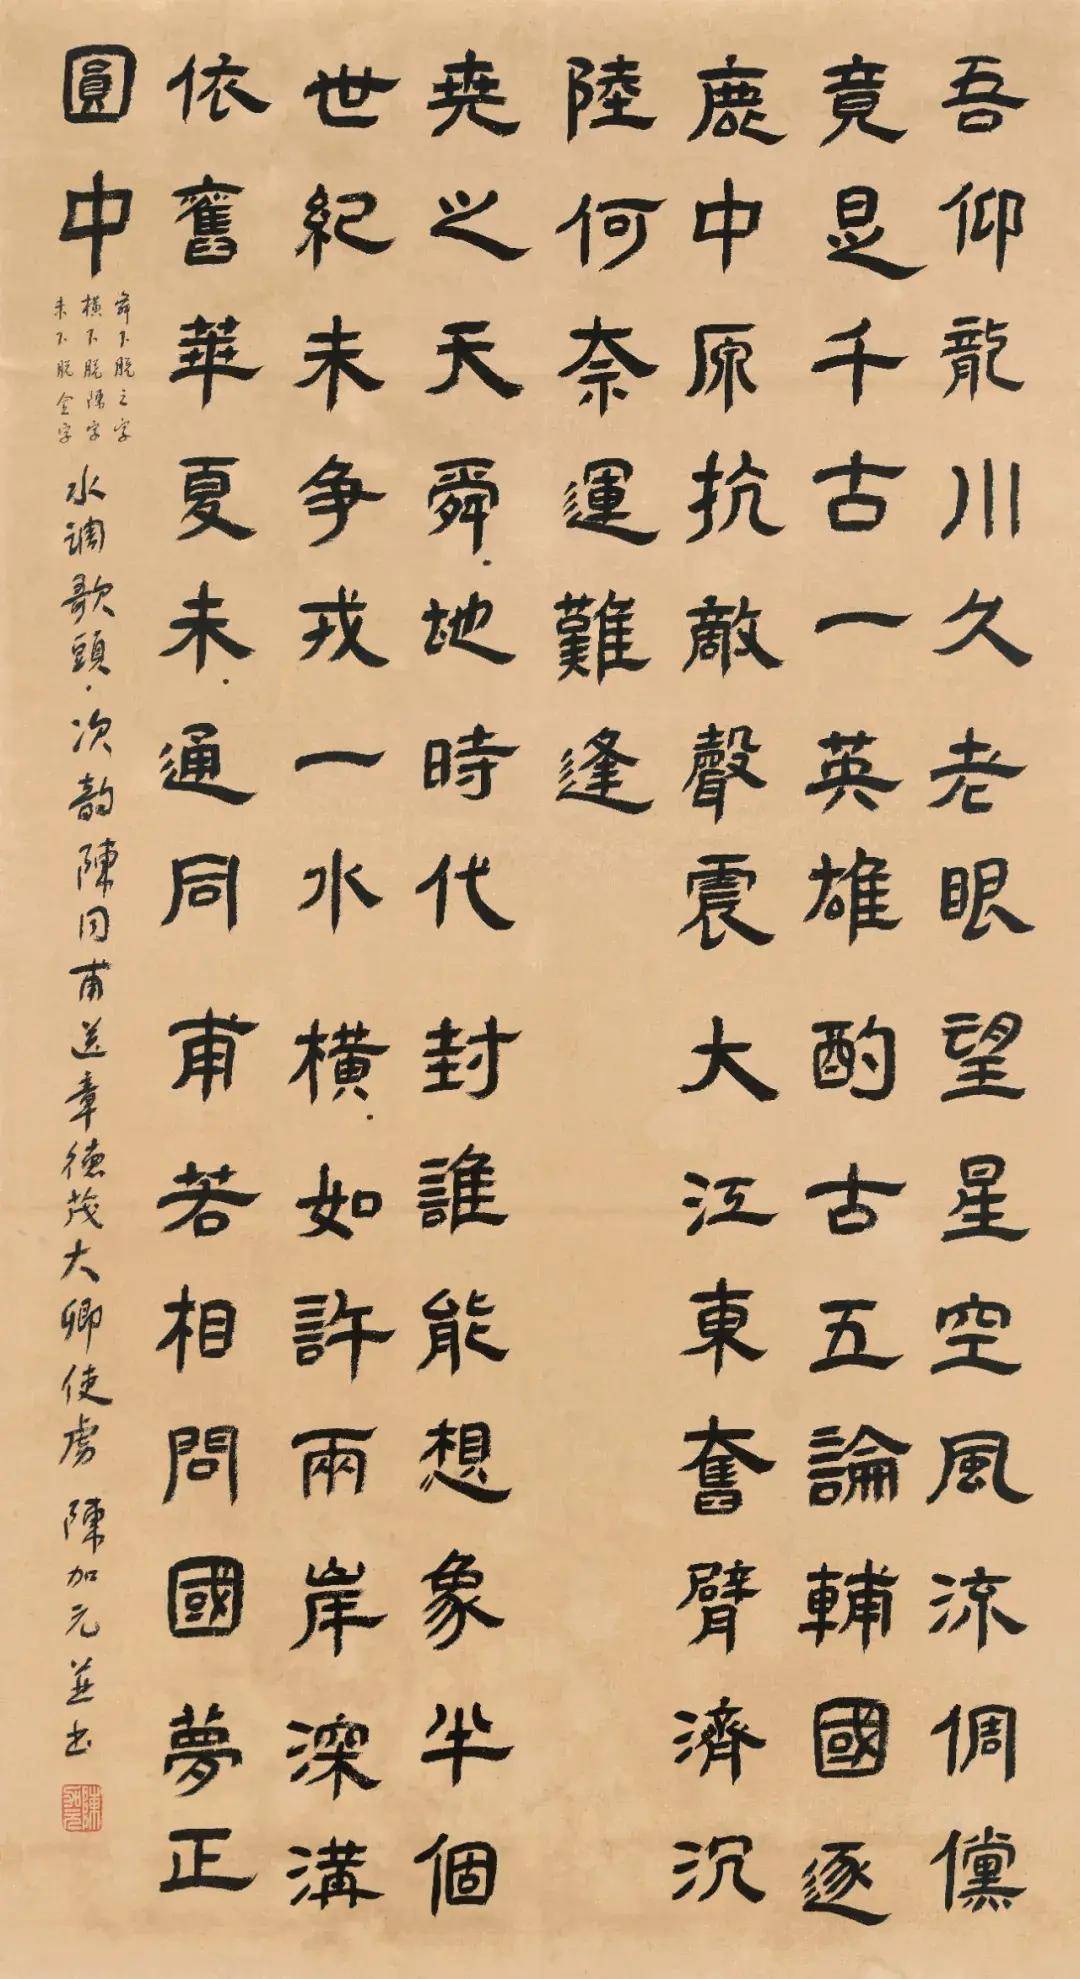 吾仰龍川久老眼望星空風流倜儻
竟是千古一英雄酌古五論輔國逐
鹿中原抗敵聲震大江東奮臂濟沉
陸何奈運難逢
堯之天舜地時代封誰能想象半個
世紀未争戎一水橫如許兩岸深溝
依舊華夏未通同甫若相問國夢正
圓中
舜下脫之字
橫下脫陳字
未下脫全字
水調歌頭·次韵陳同甫送章德茂大卿使虜 陳加元並书
陳加元